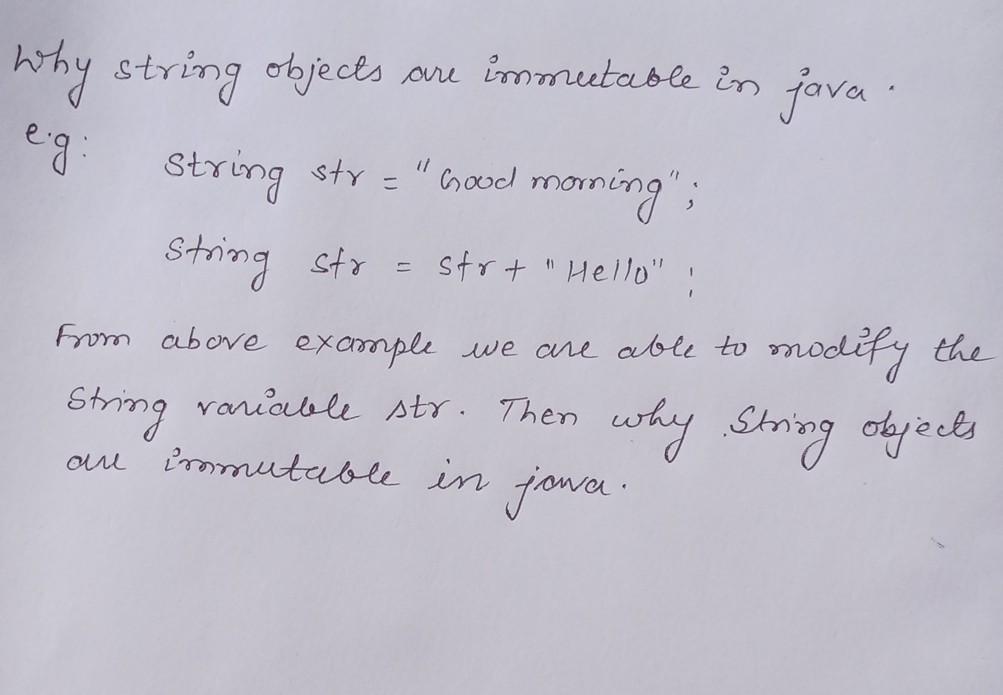 Why string objects are immutable in java.
e.g:
String str = "Good morning";
String str = str + "Hello";
From above example we are able to modify the
String variable str. Then why String objects
are immutable in java.